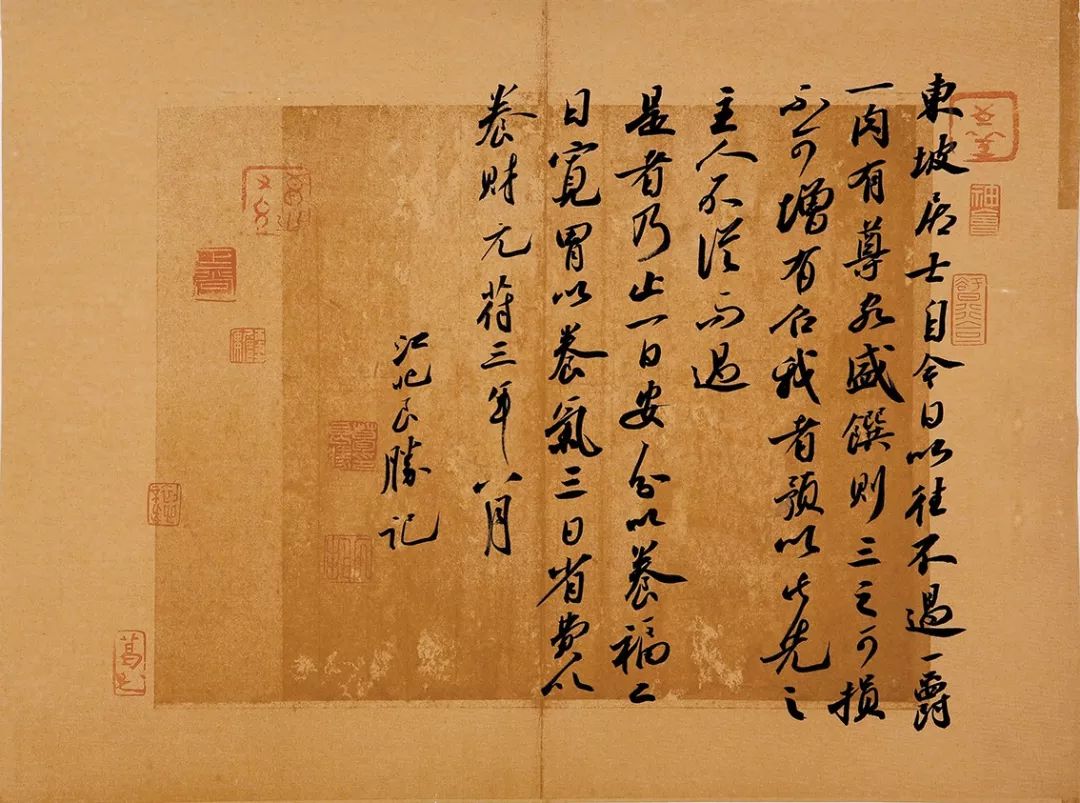 東坡居士自今日以往不過一爵
一肉有尊客盛饌則三之可損
不可增有召我者預以此先之
主人不從而過
是者乃止一日安分以養福二
日寬胃以養氣三日省費以
養財元符三年八月
江勝記